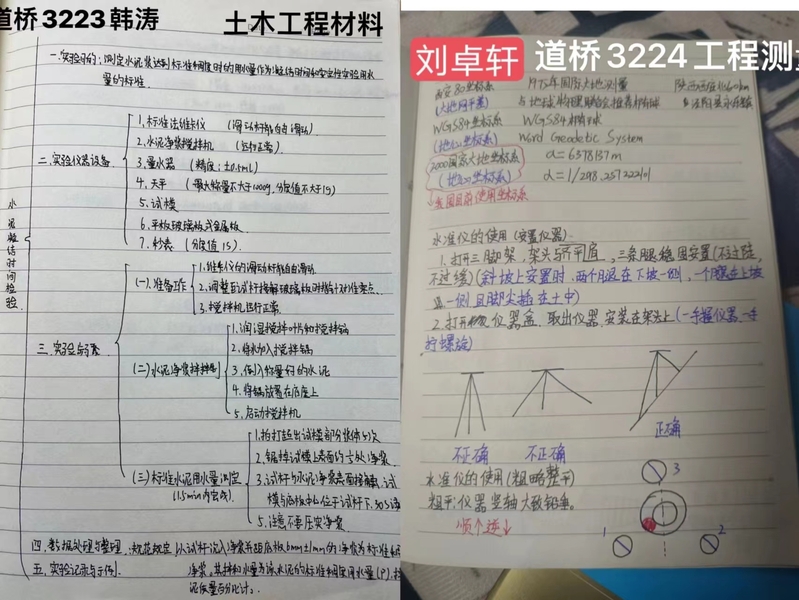 道桥3223韩涛
土木工程材料
一.实验目的:测定水泥浆达到标准稠度时的用水量作为凝结时间和安定性实验用水
量的标准.
水泥凝结时间检验
二.实验仪器设备
1.标准法维卡仪 (滑动杆能自由滑动)
2.水泥净浆搅拌机 (运行正常)
3.量水器 (精度:±0.5mL)
4.天平 (最大称量不大于1000g,分度值不大于1g)
5.试模
6.平板玻璃板或金属板
7.秒表 (分度值1S).
三.实验步骤
(一).准备工作
1.维卡仪的滑动杆能自由滑动
2.调整至试杆接触玻璃板时指针对准零点
3.搅拌机运行正常
(二)水泥净浆拌制
1.润湿搅拌叶片和搅拌锅
2.将水加入搅拌锅
3.倒入称量好的水泥
4.将锅放置在底座上
5.启动搅拌机
(三)标准水泥用水量测定
(1.5min内完成).
1.拍打超出试模部分浆体5次
2.锯掉试模上表面约1/3处净浆
3.试杆与水泥净浆表面接触
模与底板中心位于试杆下,30S
5.注意不要压实净浆
四.数据处理与整理
规范规定以试杆沉入净浆并距底板6mm±1mm的净浆为标准稠
五.实验记录与示例
净浆.其拌和水量为该水泥的标准稠度用水量(P),按
泥质量百分比计.
刘卓轩
道桥3224工程测量
西安80坐标系 1975年国际大地测量
(大地原平面) 与地球物理联合会推荐椭球
WGS84坐标系 WGS84椭球
(地心坐标系) Word Geodetic System
2000国家大地坐标系 a=6378137m
(地心坐标系) α=1/298.257222101
→我国目前使用坐标系
水准仪的使用(安置仪器)
1.打开三脚架,架头与齐平肩,三条腿稳固安置(不过陡,
不过缓)(斜坡上安置时,两个腿在下坡一侧,一个腿在上坡
一侧且脚尖插在土中)
2.打开仪器盒,取出仪器,安装在架头上(一手握仪器,一手
拧螺旋)
不正确 不正确 正确
水准仪的使用(粗略整平)
粗平:仪器竖轴大致铅垂。
顺个逆↓
3
1
2